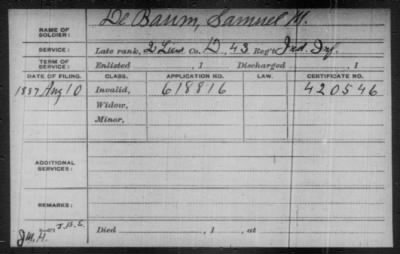 NAME OF SOLDIER: De Baum, Samuel M.
SERVICE: Late rank, 2' Lieu Co. D, 43 Reg't Ind. Inf.
TERM OF SERVICE: Enlisted , 1 Discharged , 1
DATE OF FILING. CLASS. APPLICATION NO. LAW. CERTIFICATE NO.
1887 Aug 10 Invalid, 618816 420546
Widow,
Minor,
ADDITIONAL SERVICES:
REMARKS:
J.B.S.
J.M.H. Died , 1 , at